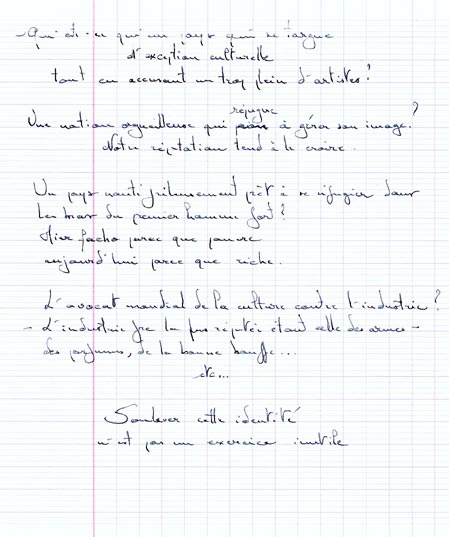 - Qu'est-ce qu'un pays qui se targue
d'exception culturelle
tout en accusant un trop plein d'artistes ?
répugne
Une nation orgueilleuse qui peine à gérer son image ?
Notre réputation tend à le croire.
Un pays nanti frileusement prêt à se réfugier dans
les bras du premier homme fort ?
Hier facho parce que pauvre
aujourd'hui parce que riche.
L'avocat mondial de la culture contre l'industrie ?
- L'industrie fse la plus réputée étant celle des armes -
des parfums, de la bonne bouffe...
etc...
cette identité
n'est pas un exercice inutile